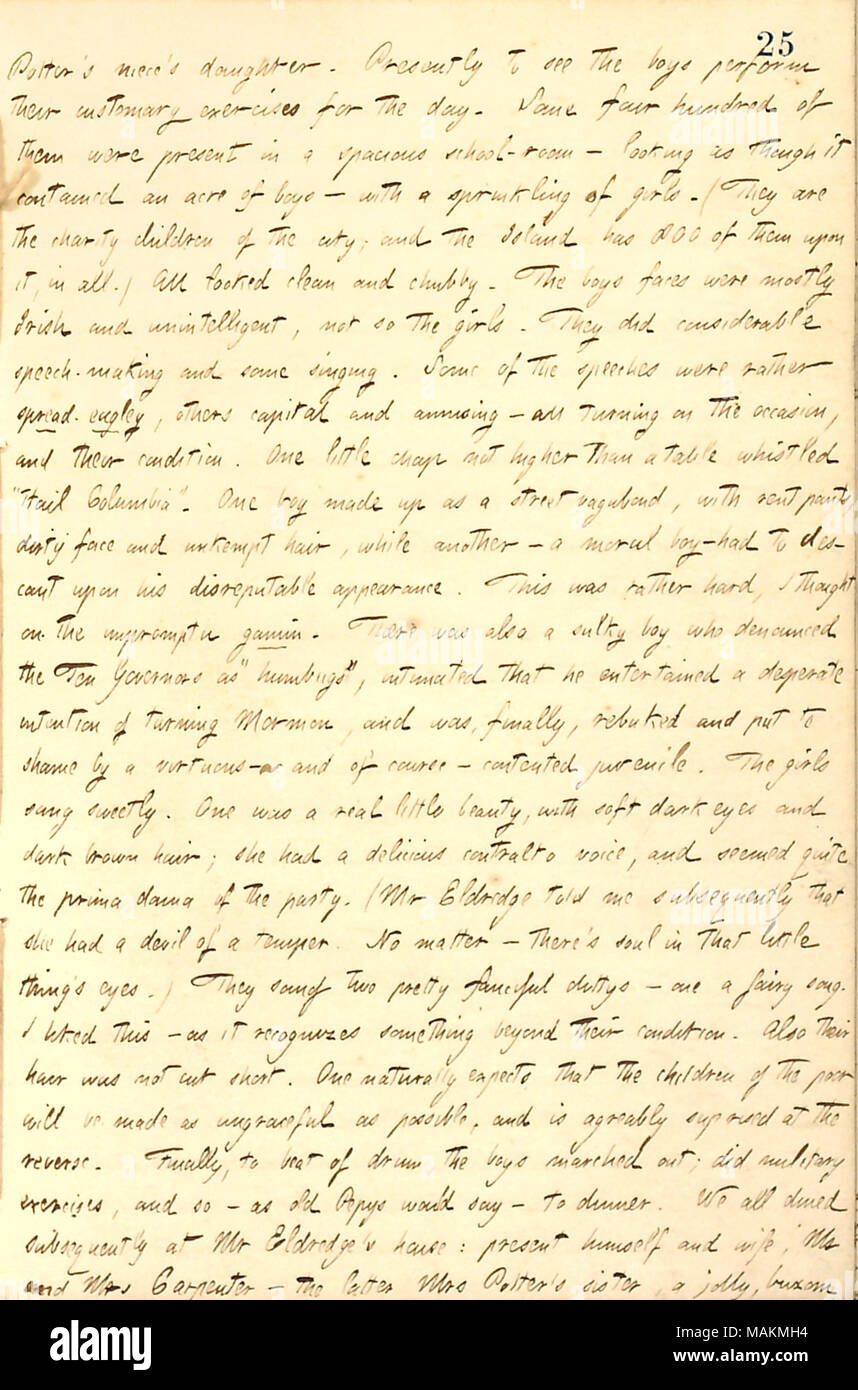 25
Potter's niece's daughter. Presently to see the boys perform
their customary exercises for the day. Some four hundred of
them were present in a spacious school-room — looking as though it
contained an acre of boys — with a sprinkling of girls. (They are
the charity children of the city; and the Island has 800 of them upon
it, in all.) All looked clean and chubby. The boys faces were mostly
Irish and unintelligent, not so the girls. They did considerable
speech-making and some singing. Some of the speeches were rather
spread-eagley, others capital and amusing — all turning on the occasion,
and their condition. One little chap not higher than a table whistled
"Hail Columbia". One boy made up as a street vagabond, with rent pants,
dirty face and unkempt hair, while another — a moral boy — had to des-
cant upon his disreputable appearance. This was rather hard, I thought
on the impromptu gamin. There was also a sulky boy who denounced
the Ten Governors as "humbugs", intimated that he entertained a desperate
intention of turning Mormon, and was, finally, rebuked and put to
shame by a virtuous — and of course — contented juvenile. The girls
sang sweetly. One was a real little beauty, with soft dark eyes and
dark brown hair; she had a delicious contralto voice, and seemed quite
the prima donna of the party. (Mr Eldredge told me subsequently that
she had a devil of a temper. No matter — there's soul in that little
thing's eyes.) They sang two pretty fanciful dittys — one a fairy song.
I liked this — as it recognizes something beyond their condition. Also their
hair was not cut short. One naturally expects that the children of the poor
will be made as ungraceful as possible, and is agreably suprised at the
reverse. Finally, to beat of drum the boys marched out; did military
exercises, and so — as old Pepys would say — to dinner. We all dined
subsequently at Mr Eldredge's house: present himself and wife, Mr
and Mrs Carpenter — the latter Mrs Potter's sister, a jolly, buxom
alamy
Image ID: MAKMH4
www.alamy.com